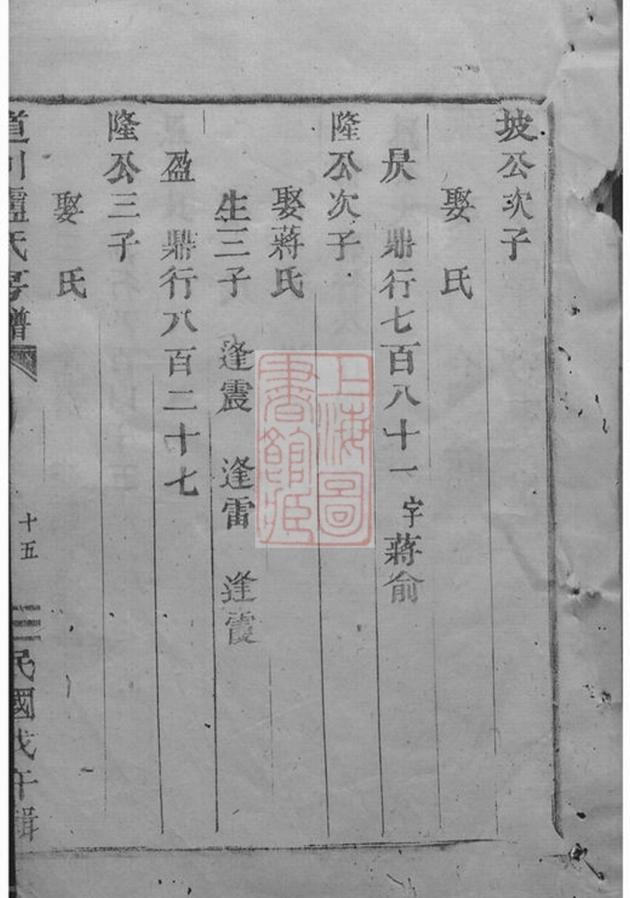 坡公次子
娶 氏
昃 鼎行七百八十一 字蔣俞
隆公次子
娶蔣氏
生三子 逢震 逢雷 逢霞
盈 鼎行八百二十七
隆公三子
娶 氏
道川盧氏房譜
十五
民國戊午輯
上海圖
書館藏